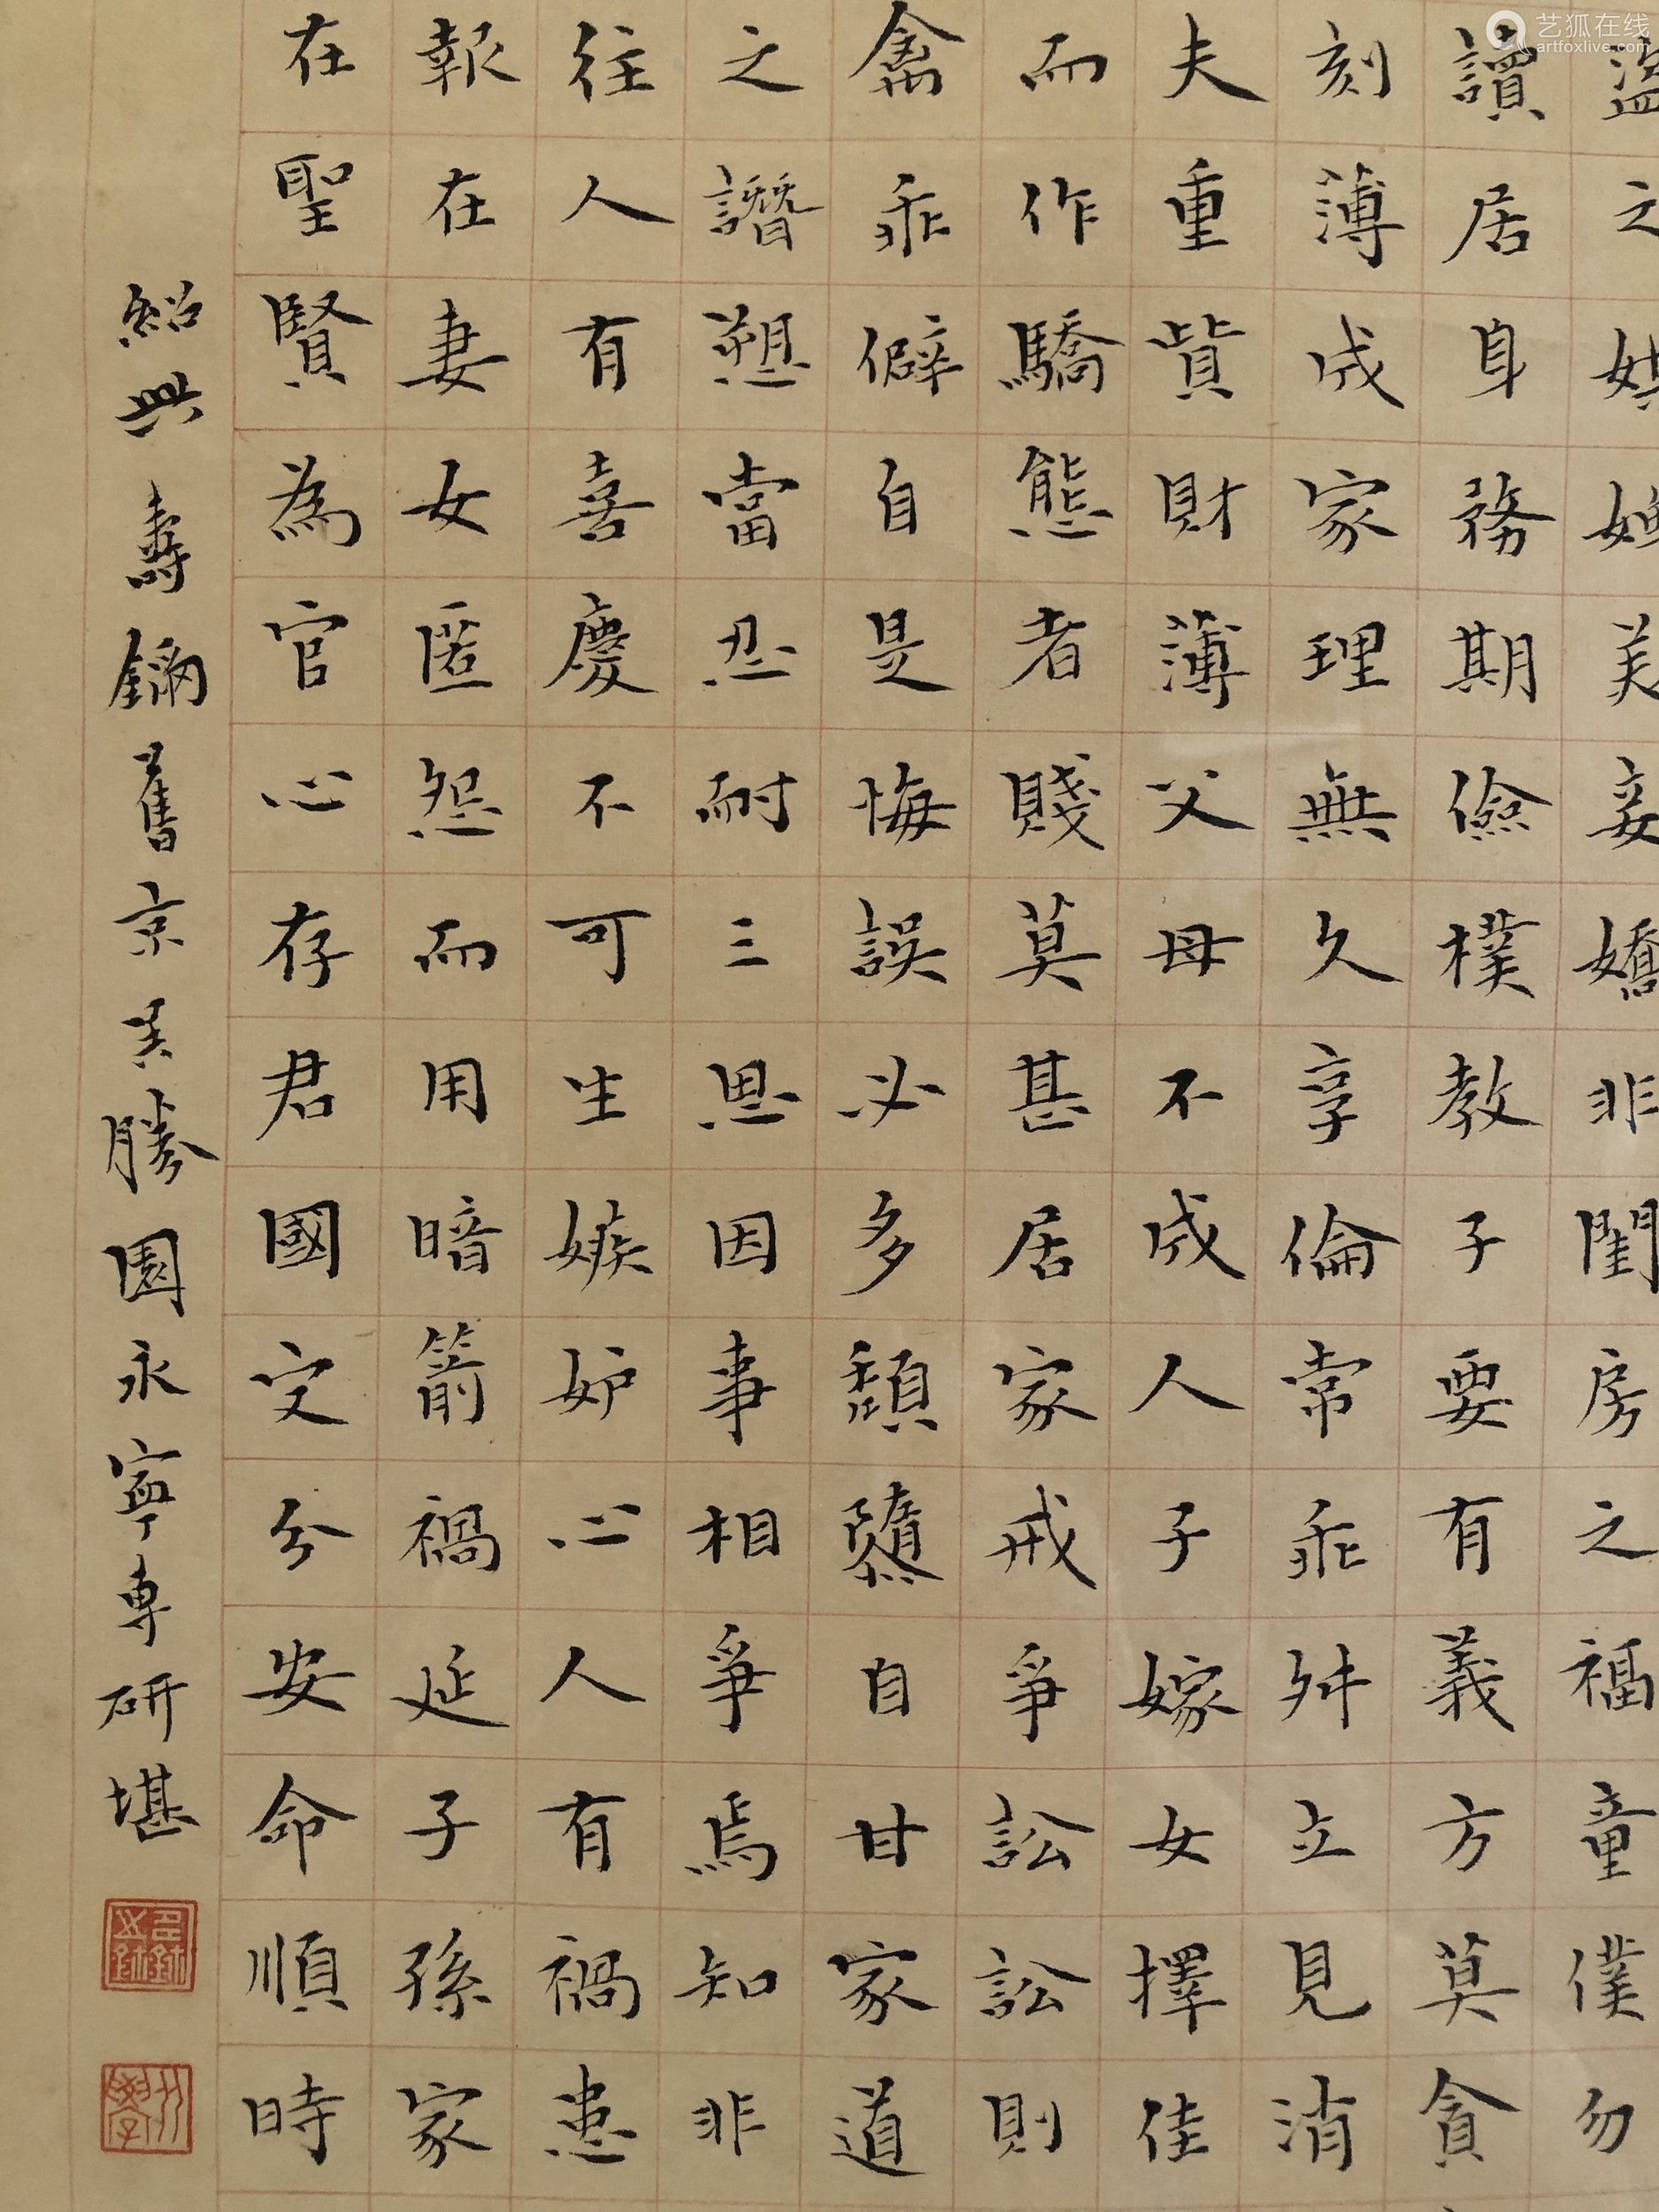 盜之媒婢美妾嬌非閨房之福童僕勿
讀居身務期儉樸教子要有義方莫貪
刻薄成家理無久享倫常乖舛立見消
夫重貲財薄父母不成人子嫁女擇佳
而作驕態者賤莫甚居家戒爭訟訟則
禽乖僻自是悔誤必多頹墮自甘家道
之譖愬當忍耐三思因事相爭焉知非
往人有喜慶不可生嫉妒心人有禍患
報在妻女匿怨而用暗箭禍延子孫家
在聖賢為官心存君國安分安命順時
紹興壽鏑舊京吳勝園永寧專研堪
艺狐在线
artfoxlive.com